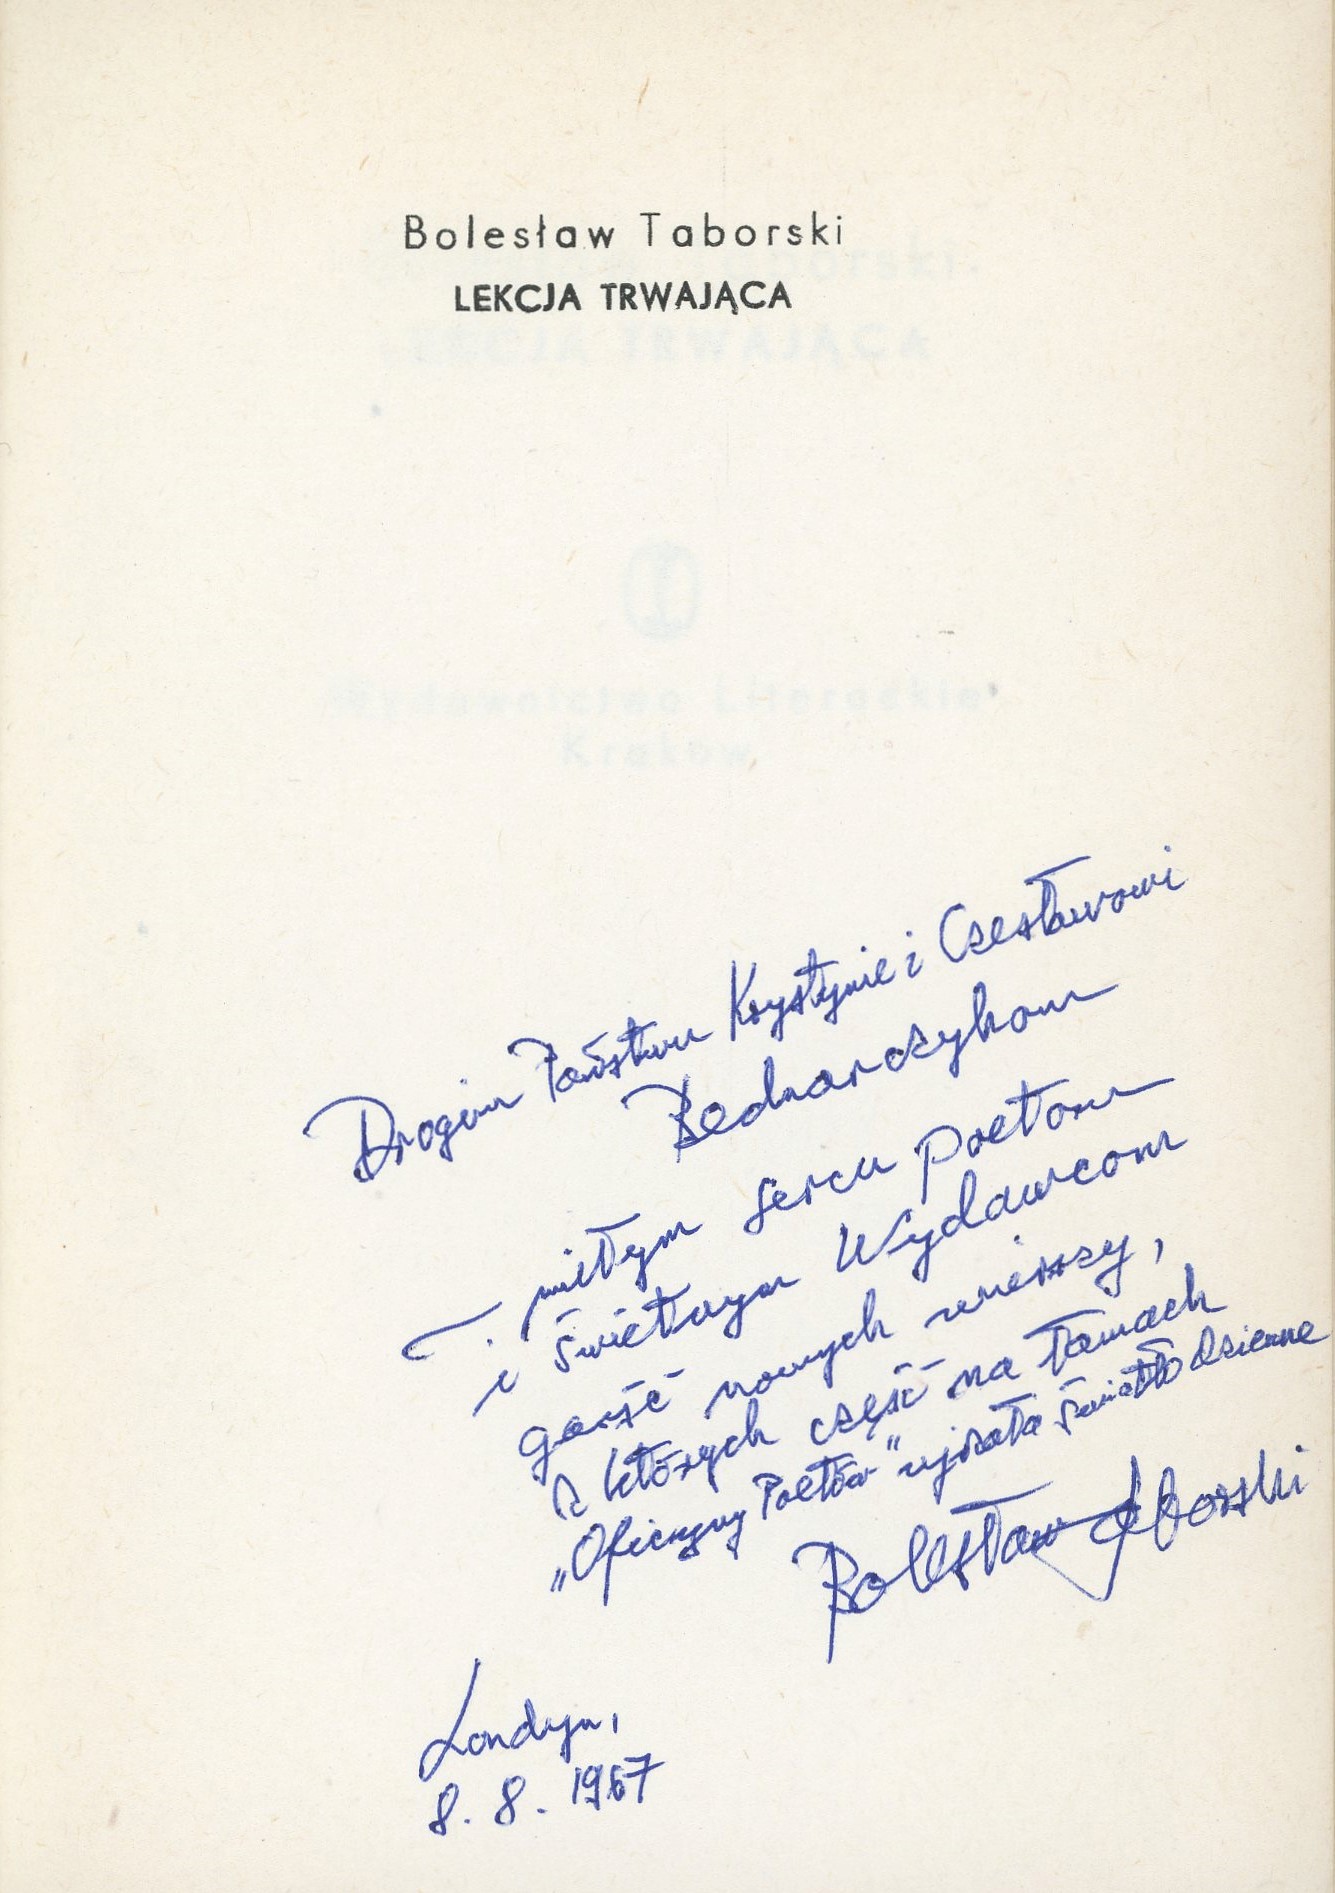 Bolesław Taborski
LEKCJA TRWAJĄCA
Wydawnictwo Literackie
Kraków
Drogim Państwu Krystynie i Czesławowi
Bednarczykom
— miłym sercu Poetom
i świetnym Wydawcom
garść nowych wierszy,
z których część na łamach
„Oficyny Poetów" ujrzała światło dzienne
Bolesław Taborski
Londyn,
8. 8. 1967